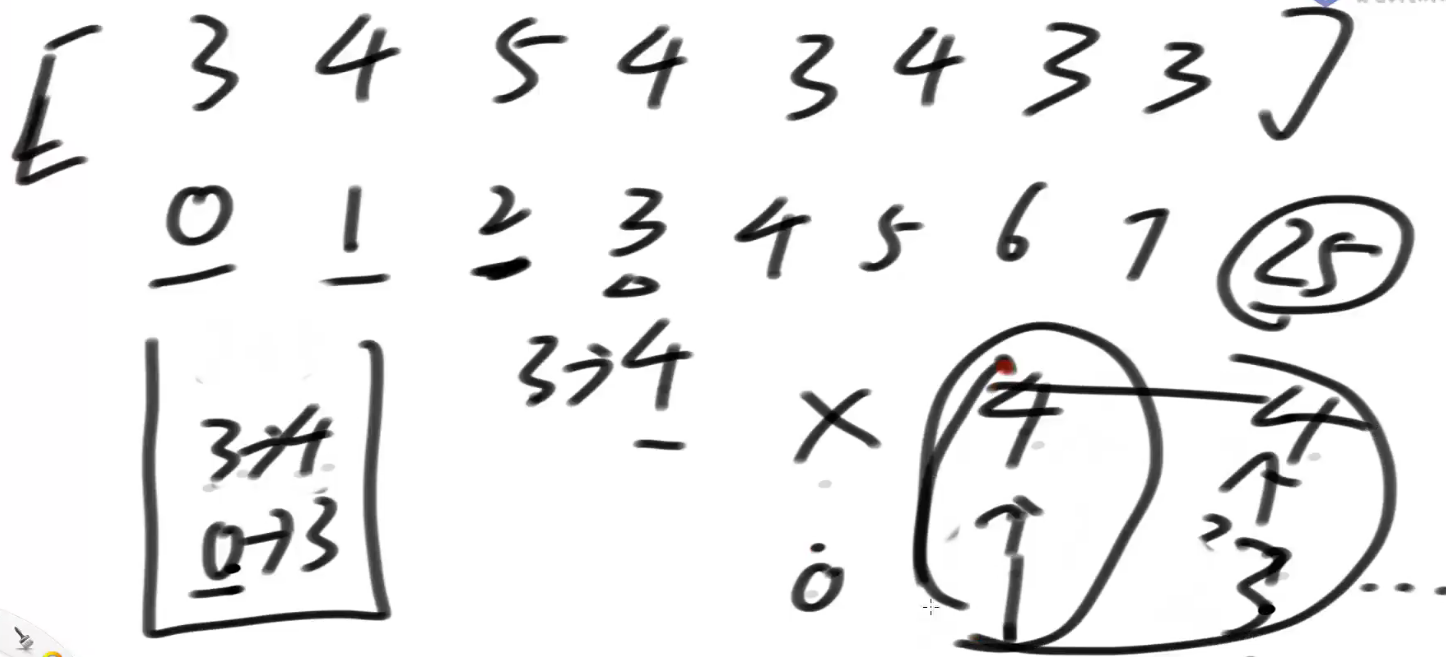 [ 3 4 5 4 3 4 3 3 ]
0 1 2 3 4 5 6 7 25
3→4
3→4
0→3
× 4 4
0 1 2 3 ...